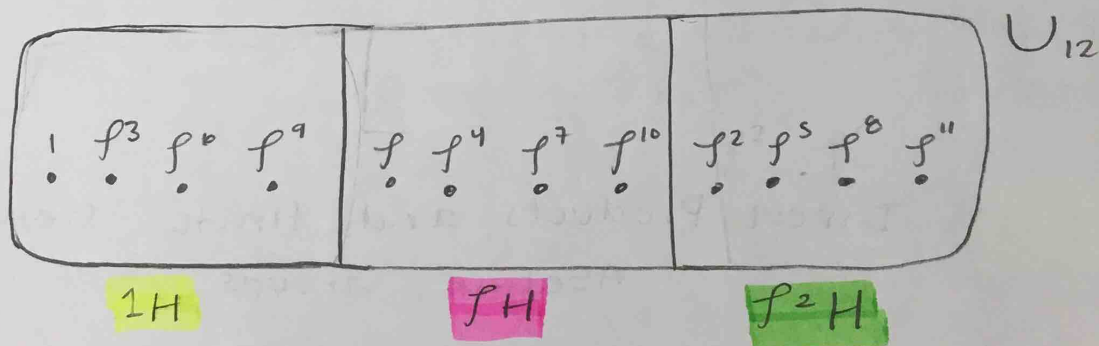 U₁₂
1 ρ³ ρ⁶ ρ⁹ ρ ρ⁴ ρ⁷ ρ¹⁰ ρ² ρ⁵ ρ⁸ ρ¹¹
1H ρH ρ²H